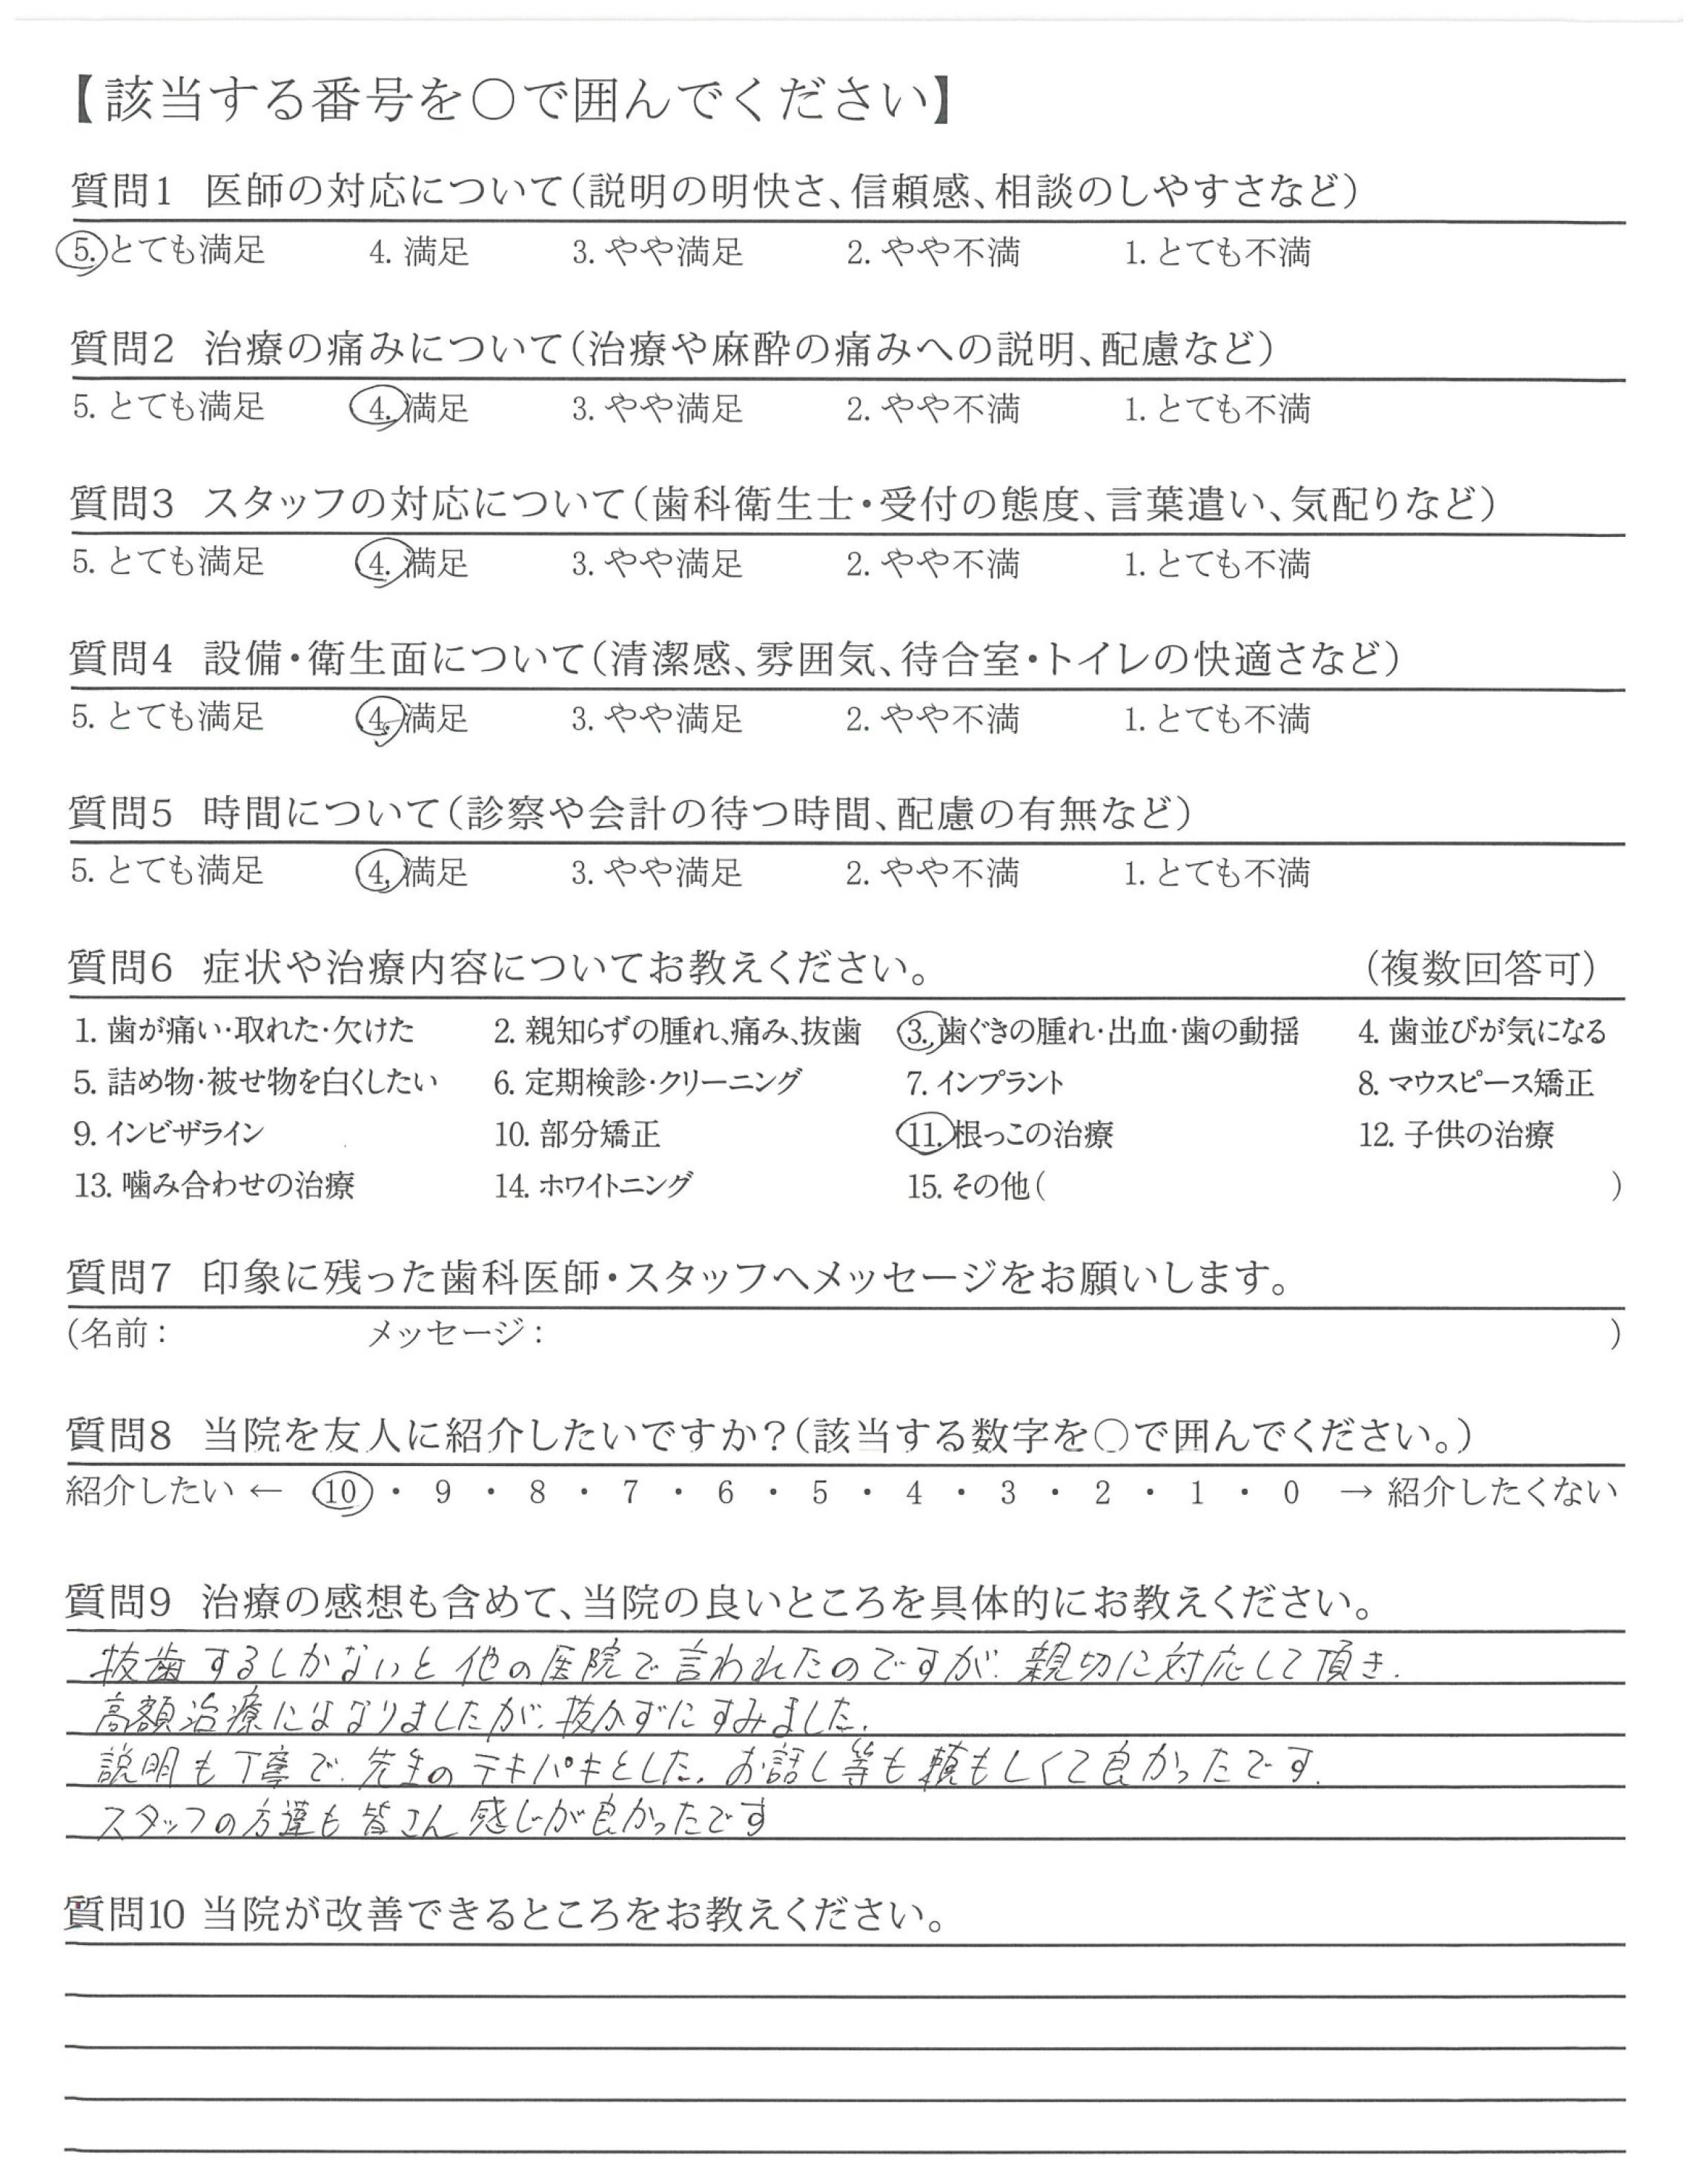 【該当する番号を○で囲んでください】
質問1 医師の対応について(説明の明快さ、信頼感、相談のしやすさなど)
5. とても満足 4. 満足 3. やや満足 2. やや不満 1. とても不満
質問2 治療の痛みについて(治療や麻酔の痛みへの説明、配慮など)
5. とても満足 4. 満足 3. やや満足 2. やや不満 1. とても不満
質問3 スタッフの対応について(歯科衛生士・受付の態度、言葉遣い、気配りなど)
5. とても満足 4. 満足 3. やや満足 2. やや不満 1. とても不満
質問4 設備・衛生面について(清潔感、雰囲気、待合室・トイレの快適さなど)
5. とても満足 4. 満足 3. やや満足 2. やや不満 1. とても不満
質問5 時間について(診察や会計の待つ時間、配慮の有無など)
5. とても満足 4. 満足 3. やや満足 2. やや不満 1. とても不満
質問6 症状や治療内容についてお教えください。 (複数回答可)
1. 歯が痛い・取れた・欠けた 2. 親知らずの腫れ、痛み、抜歯 3. 歯ぐきの腫れ・出血・歯の動揺 4. 歯並びが気になる
5. 詰め物・被せ物を白くしたい 6. 定期検診・クリーニング 7. インプラント 8. マウスピース矯正
9. インビザライン 10. 部分矯正 11. 根っこの治療 12. 子供の治療
13. 噛み合わせの治療 14. ホワイトニング 15. その他( )
質問7 印象に残った歯科医師・スタッフへメッセージをお願いします。
(名前: メッセージ: )
質問8 当院を友人に紹介したいですか?(該当する数字を○で囲んでください。)
紹介したい ← 10 ・ 9 ・ 8 ・ 7 ・ 6 ・ 5 ・ 4 ・ 3 ・ 2 ・ 1 ・ 0 → 紹介したくない
質問9 治療の感想も含めて、当院の良いところを具体的にお教えください。
抜歯するしかないと他の医院で言われたのですが、親切に対応して頂き、
高額治療にはなりましたが、抜かずにすみました。
説明も丁寧で、先生のテキパキとした、お話し等も頼もしくて良かったです。
スタッフの方達も皆さん感じが良かったです
質問10 当院が改善できるところをお教えください。